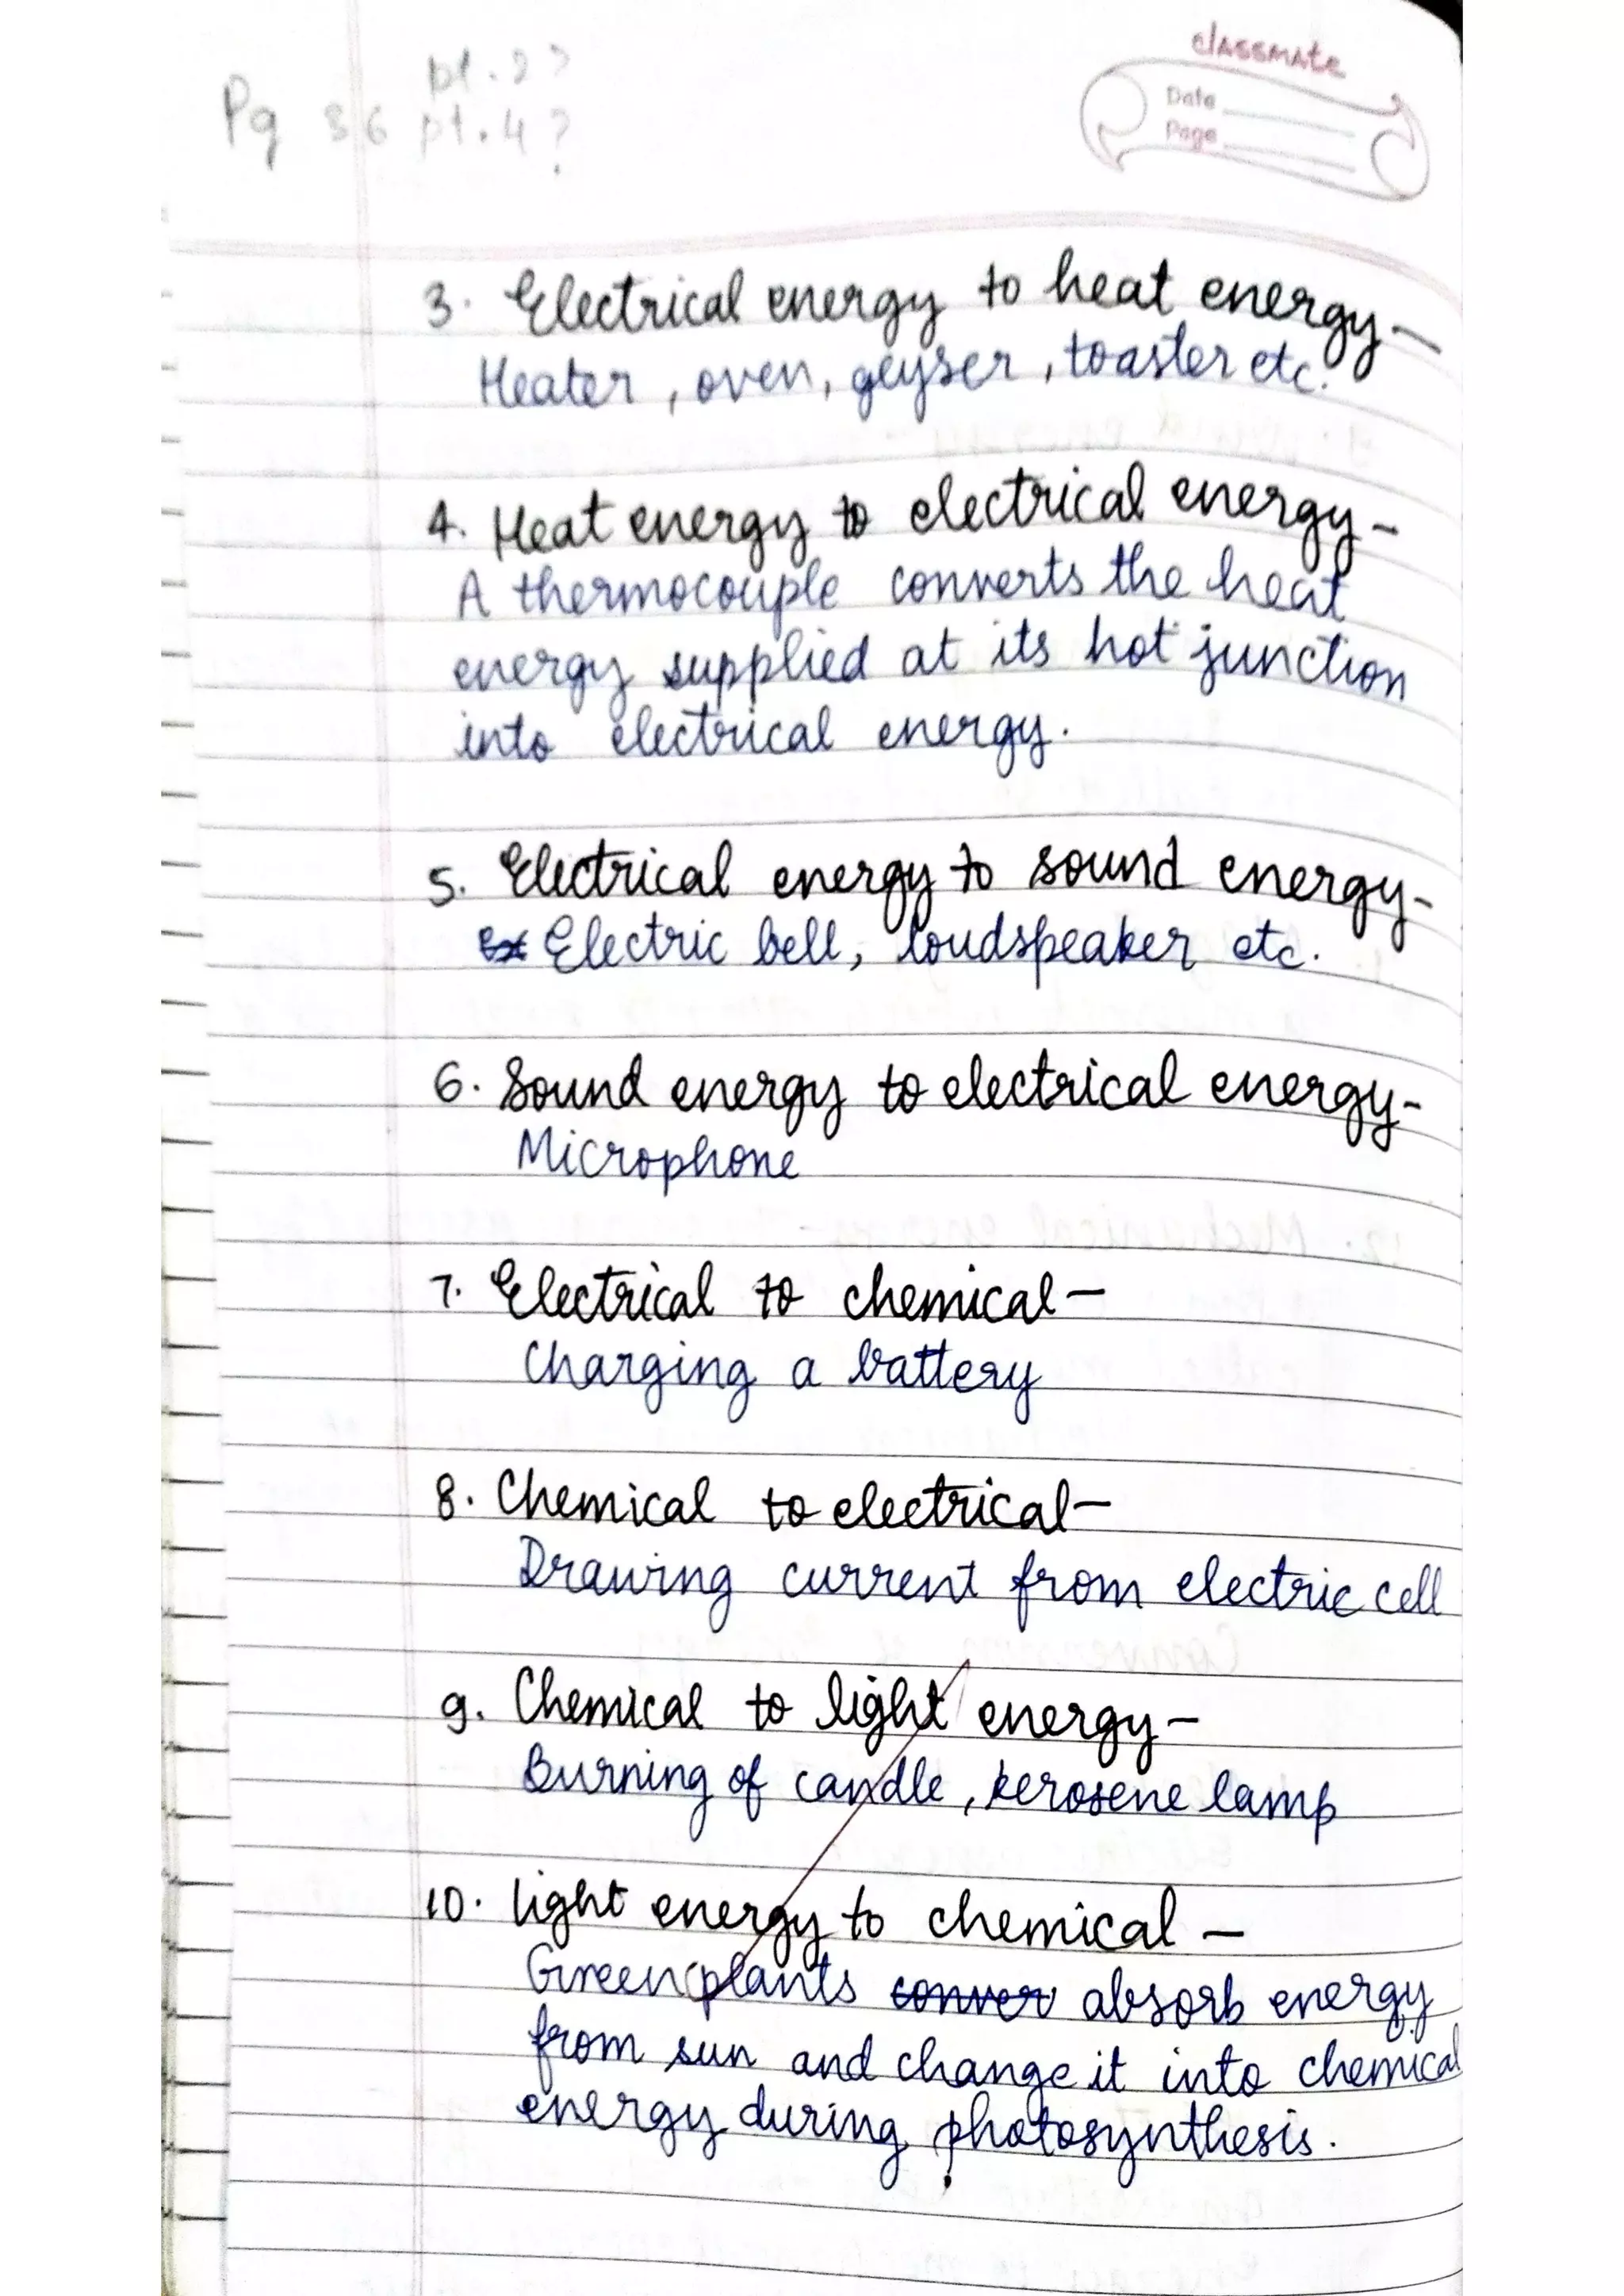 classmate
Date
Page
pt. 2?
Pg 36 pt. 4?
3. Electrical energy to heat energy—
Heater, oven, geyser, toaster etc.
4. Heat energy to electrical energy-
A thermocouple converts the heat
energy supplied at its hot junction
into electrical energy.
5. Electrical energy to sound energy-
Ex Electric bell, loudspeaker etc.
6. Sound energy to electrical energy-
Microphone
7. Electrical to chemical—
Charging a battery
8. Chemical to electrical—
Drawing current from electric cell
9. Chemical to light energy—
Burning of candle, kerosene lamp
10. light energy to chemical —
Green plants conver absorb energy
from sun and change it into chemical
energy during photosynthesis.